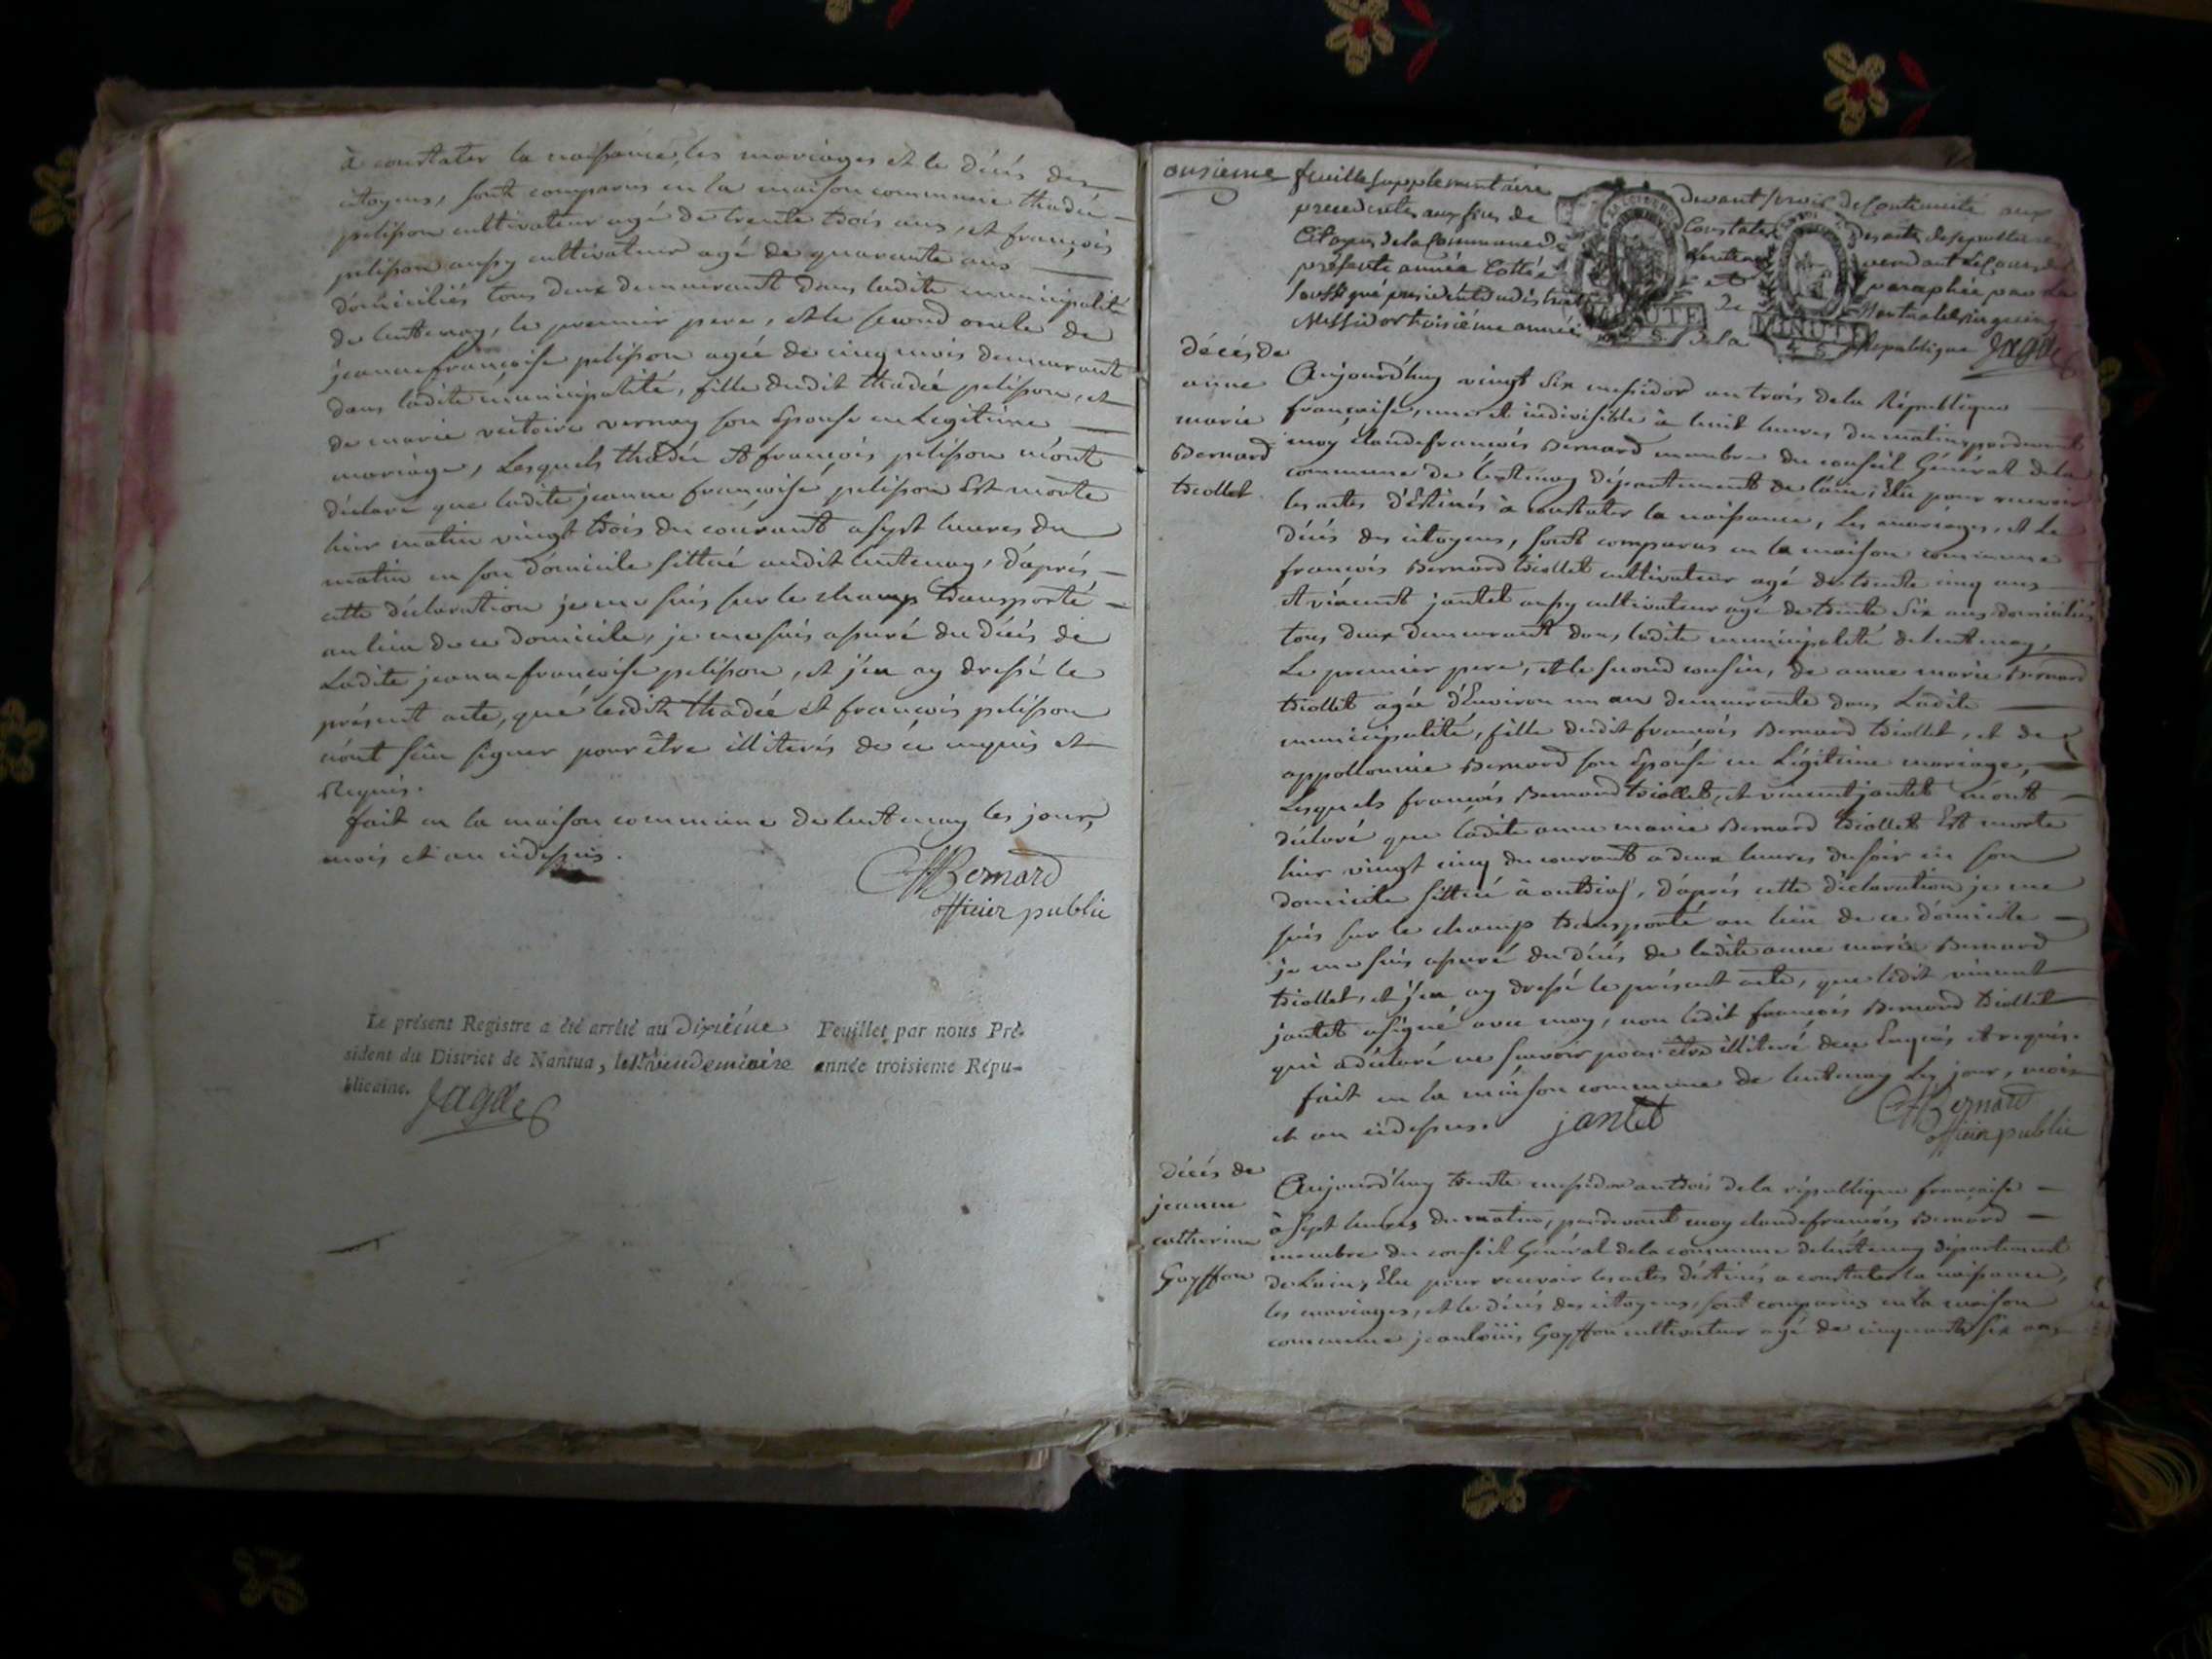 à constater la naissance, les mariages et le décés des
citoyens, sont comparus en la maison commune thadée
pelisson cultivateur agé de trente trois ans, et françois
pelisson aussy cultivateur agé de quarante ans
domiciliés tous deux demeurant dans ladite municipalité
de lentenay, le premier pere, et le second oncle de
jeanne françoise pelisson agée de cinq mois demeurant
dans ladite municipalité, fille dudit thadée pelisson, et
de marie victoire vernay son Epouse en Legitime
mariage, Lesquels thadée et françois pelisson m'ont
déclaré que ladite jeanne françoise pelisson Est morte
hier matin vingt trois du courant a sept heures du
matin en son domicile sittué audit lentenay, d'aprés
cette déclaration je me suis sur le champ transporté
au lieu de ce domicile, je me suis assuré du décés de
Ladite jeanne françoise pelisson, et j'en ay dressé le
présent acte, que lesdits thadée et françois pelisson
n'ont sçu signer pour être illiterés de ce enquis et
Requis.
fait en la maison commune de lentenay les jour,
mois et an cidessus.
Bernard
officier public
Le présent Registre a été arrêté au dixiéme Feuillet par nous Pré-
sident du District de Nantua, le vendemiaire année troisieme Répu-
blicaine. Jagot
onsieme feuille supplementaire devant servir de Continuité aux
precedentes aux fins de Constater les actes de sepulture
Citoyens de la Commune de lentenay pendant le Cours de
présente année Cottée et paraphée par Le
soussigné president du district de
Messidor troisiéme année de la Republique Jagot
décés de
anne
marie
Bernard
triollet
Aujourd'huy vingt six messidor an trois de la République
françoise, une et indivisible à huit heures du matin, pardevant
moy claude françois Bernard membre du conseil Général de la
commune de lentenay département de l'ain, Elu pour recevoir
les actes d'Estinés à constater la naissance, les mariages, et le
décés des citoyens, sont comparus en la maison commune
françois Bernard triollet cultivateur agé de trente cinq ans
et vincent jantet aussy cultivateur agé de trente six ans domiciliés
tous deux demeurant dans ladite municipalité de lentenay,
Le premier pere, et le second cousin, de anne marie Bernard
triollet agée d'Environ un an demeurante dans Ladite
municipalité, fille dudit françois Bernard triollet, et de
appollonie Bernard son Epouse en Légitime mariage,
Lesquels françois Bernard triollet, et vincent jantet m'ont
déclaré que ladite anne marie Bernard triollet Est morte
hier vingt cinq du courant a deux heures du soir en son
domicile sittué à outriaz, d'aprés cette déclaration je me
suis sur le champ transporté au lieu de ce domicile
je me suis assuré du décés de ladite anne marie Bernard
triollet, et j'en ay dressé le présent acte, que ledit vincent
jantet a signé avec moy, non ledit françois Bernard triollet
qui a déclaré ne sçavoir pour être illiteré de ce Enquis et requis.
fait en la maison commune de lentenay Les jour, mois
et an cidessus. jantet
Bernard
officier public
décés de
jeanne
catherine
Goyffon
Aujourd'huy trente messidor an trois de la république françoise
à sept heures du matin, pardevant moy claude françois Bernard
membre du conseil Général de la commune de lentenay département
de L'ain, Elu pour recevoir les actes d'éstinés a constater la naissance,
les mariages, et le décés des citoyens, sont comparus en la maison
commune jean louis Goyffon cultivateur agé de cinquante six ans